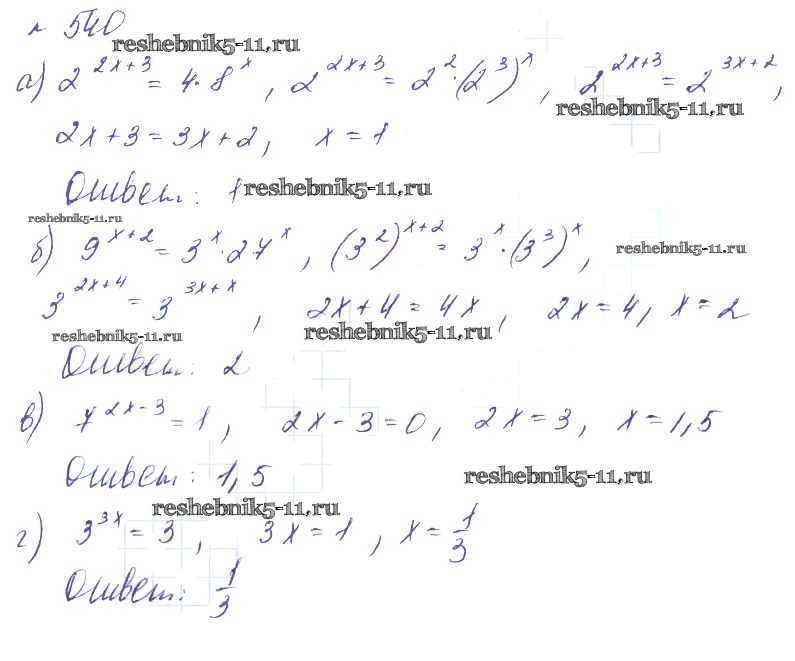 № 540
reshebnik5-11.ru
а) 2^(2x+3) = 4·8^x, 2^(2x+3) = 2^2·(2^3)^x, 2^(2x+3) = 2^(3x+2),
reshebnik5-11.ru
2x+3=3x+2, x=1
Ответ: 1
reshebnik5-11.ru
reshebnik5-11.ru
б) 9^(x+2) = 3^x·27^x, (3^2)^(x+2) = 3^x·(3^3)^x,
reshebnik5-11.ru
3^(2x+4) = 3^(3x+x), 2x+4=4x, 2x=4, x=2
reshebnik5-11.ru
reshebnik5-11.ru
Ответ: 2
в) 7^(2x-3) = 1, 2x-3=0, 2x=3, x=1,5
Ответ: 1,5
reshebnik5-11.ru
reshebnik5-11.ru
г) 3^(3x) = 3, 3x=1, x=1/3
Ответ: 1/3